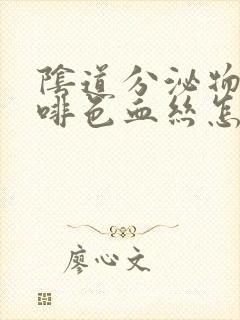 陰道分泌物
啡色血絲怎
廖心文